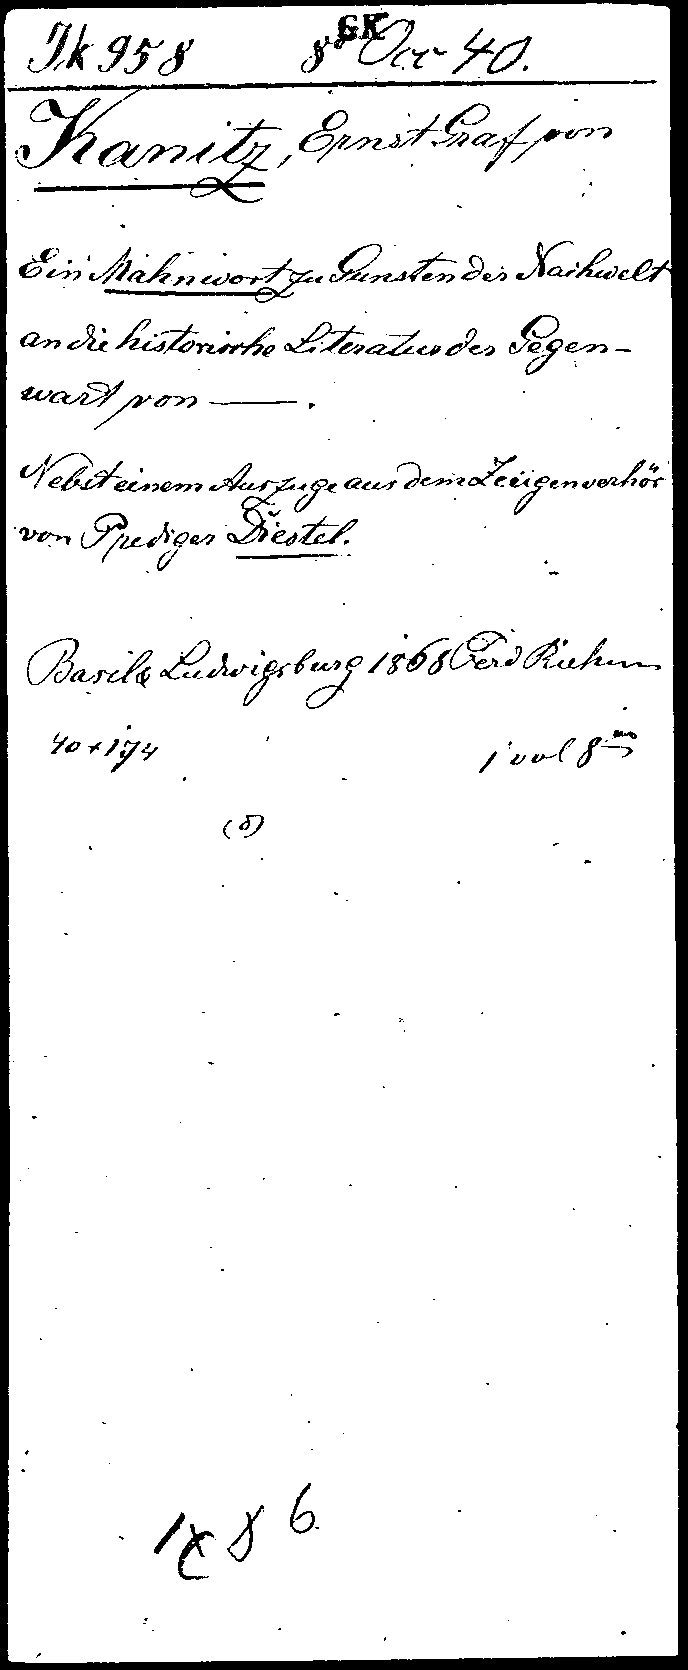 Ik 958 8° Occ 40.
GK
Kanitz, Ernst Graf von
Ein Mahnwort zu Gunsten der Nachwelt
an die historische Literatur der Gegen-
wart von ——.
Nebst einem Auszuge aus dem Zeugenverhör
von Prediger Diestel.
Basil & Ludwigsburg 1868 Ferd Riehm
40+174 1 vol 8vo
(8)